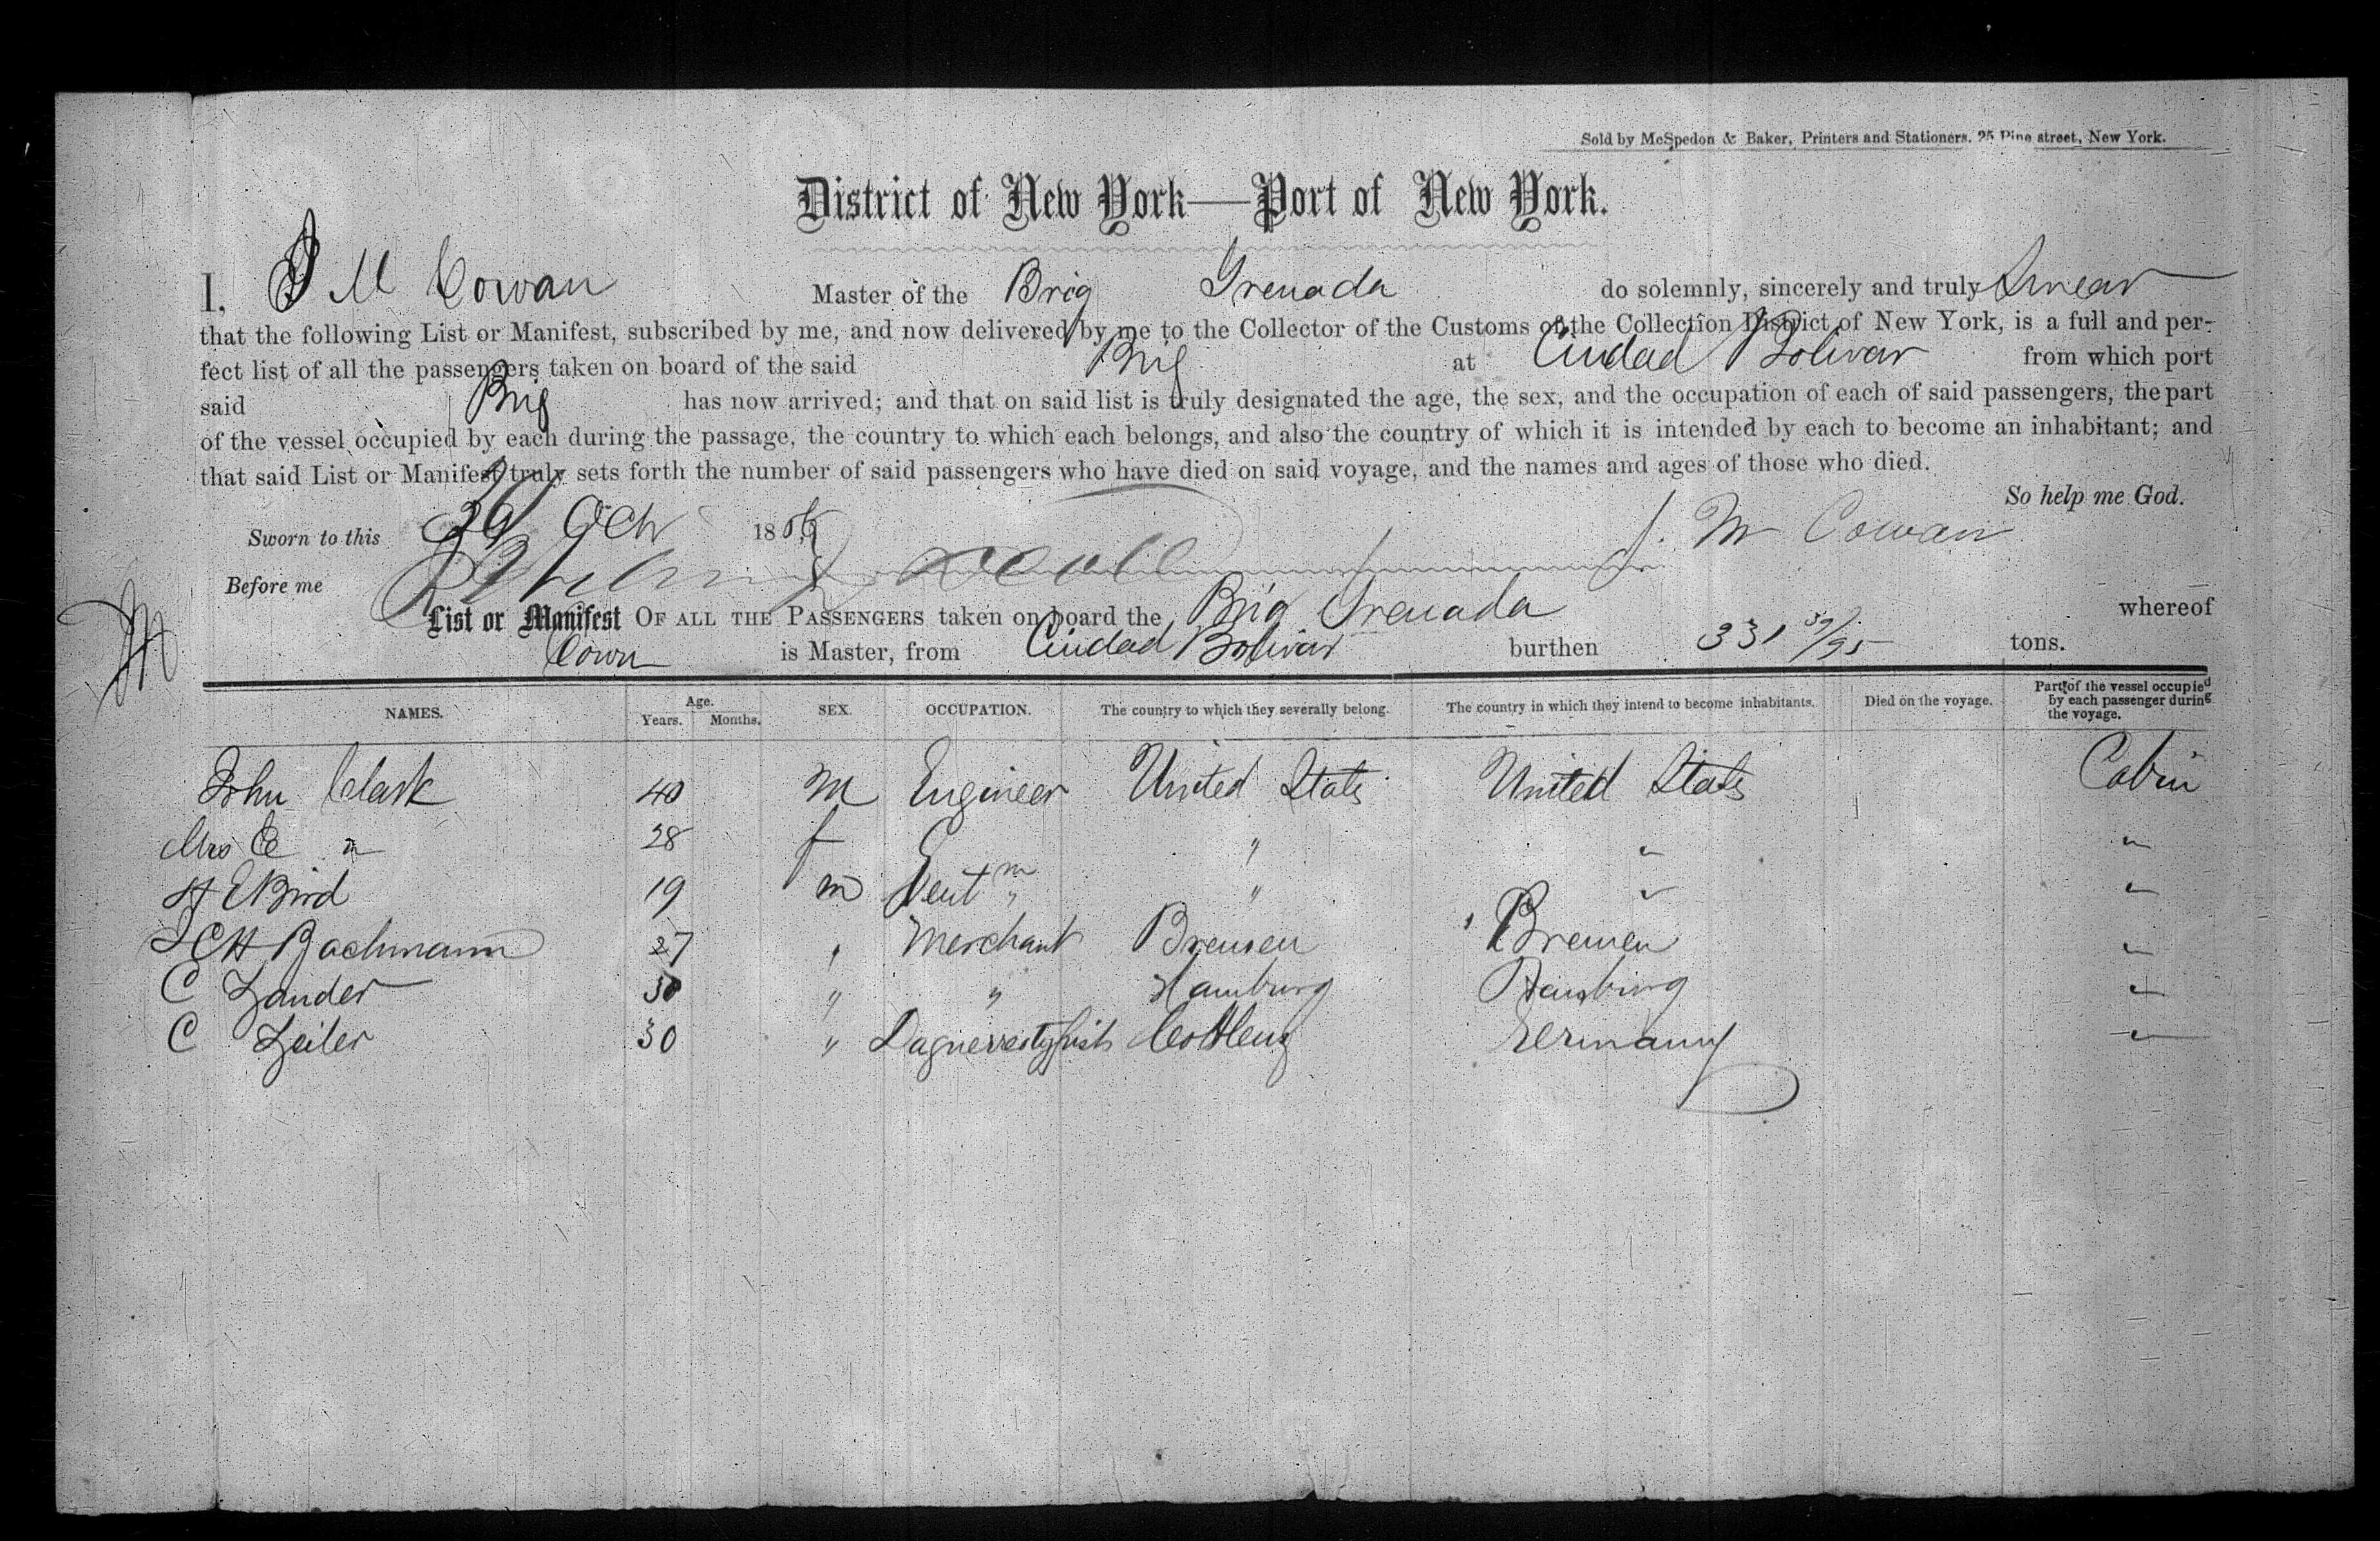 Sold by McSpedon & Baker, Printers and Stationers. 25 Pine street, New York.
District of New York—Port of New York.
I, J M Cowan Master of the Brig Grenada do solemnly, sincerely and truly Swear
that the following List or Manifest, subscribed by me, and now delivered by me to the Collector of the Customs of the Collection District of New York, is a full and per-
fect list of all the passengers taken on board of the said Brig at Ciudad Bolivar from which port
said Brig has now arrived; and that on said list is truly designated the age, the sex, and the occupation of each of said passengers, the part
of the vessel occupied by each during the passage, the country to which each belongs, and also the country of which it is intended by each to become an inhabitant; and
that said List or Manifest truly sets forth the number of said passengers who have died on said voyage, and the names and ages of those who died.
So help me God.
Sworn to this 29 Oct 18 J. M Cowan
Before me
List or Manifest OF ALL THE PASSENGERS taken on board the Brig Grenada whereof
Cowan is Master, from Ciudad Bolivar burthen 331 37/95 tons.
NAMES. Age. Years. Months. SEX. OCCUPATION. The country to which they severally belong. The country in which they intend to become inhabitants. Died on the voyage. Part of the vessel occupied by each passenger during the voyage.
John Clark 40 M Engineer United States United States Cabin
Mrs C " 28 f " " "
H E Bird 19 m Gent m " " " "
C H Bachmann 27 " Merchant Bremen Bremen "
C Zander 30 " " Hamburg Hamburg "
C Zeiler 30 " Daguerreotypist Coblenz Germany "